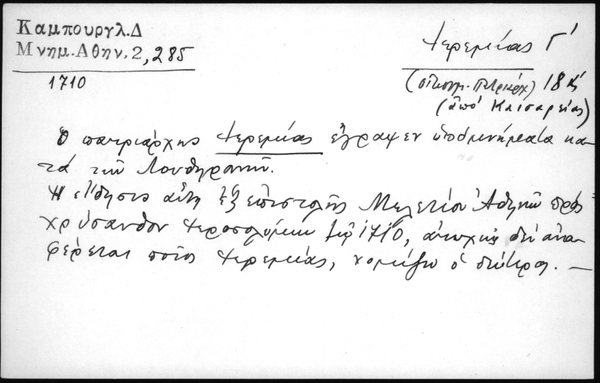 Καμπουργλ.Δ
Μνημ.Αθην.2,285
1710
Ἱερεμίας Γ΄
(οἰκουμ. Πατριάρχ) 18 
(ἀπό Καισαρείας)
Ὁ πατριάρχης Ἱερεμίας ἔγραψεν ὑπομνήματα κα-
τά τῶν Λουθηρανῶν.
Ἡ εἴδησις αὕτη ἐξ ἐπιστολῆς Μελετίου Ἀθηνῶν πρός
Χρύσανθον Ἱεροσολύμων 1710, ἀτυχῶς δέν ἀνα-
φέρεται ποῖος Ἱερεμίας, νομίζω ὁ δεύτερος. —